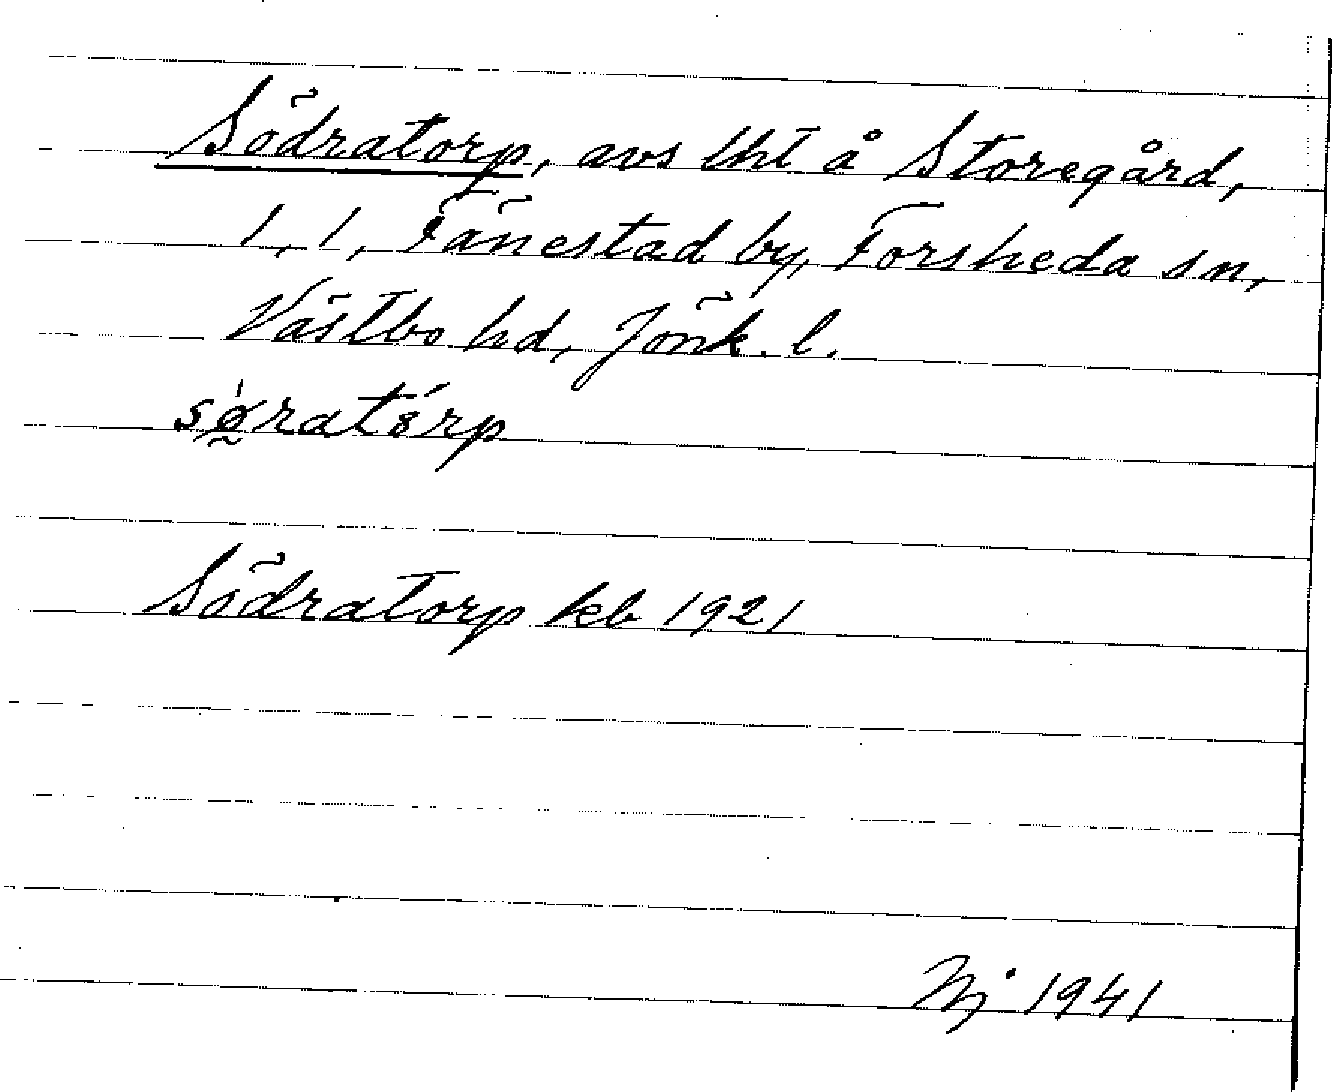 Södratorp, avs lht å Storegård,
1, 1, Fänestad by, Forsheda sn,
Västbo hd, Jönk. l.
sø̰̀ratórp
Södratorp kb 1921
Nj 1941